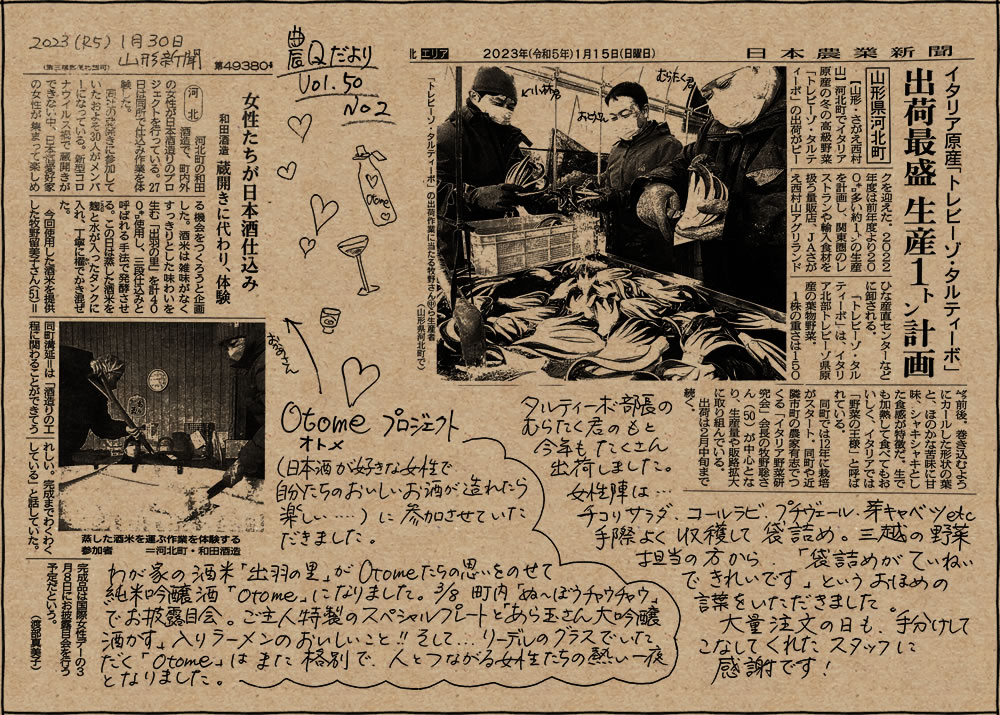 2023(R5)1月30日
山形新聞
(第三種郵便物認可)
第49380号
農Qだより
Vol.50
No2
北 エリア
2023年(令和5年)1月15日(日曜日)
日本農業新聞
イタリア原産「トレビーゾ・タルティーボ」
出荷最盛 生産1㌧計画
山形県河北町
【山形・さがえ西村
山】河北町でイタリア
原産の冬の高級野菜
「トレビーゾ・タルテ
ィーボ」の出荷がピー
クを迎えた。2022
年度は前年度より20
0㌔多い約1㌧の生産
を計画し、関東圏のレ
ストランや輸入食材を
扱う量販店、JAさが
え西村山アグリランド
ひな産直センターなど
に卸される。
「トレビーゾ・タル
ティーボ」は、イタリ
ア北部トレビーゾ県原
産の葉物野菜。
1株の重さは150
㌘前後。巻き込むよう
にカールした形状の葉
と、ほのかな苦味に甘
味、シャキシャキとし
た食感が特徴だ。生で
も加熱して食べてもお
いしく、イタリアでは
「野菜の王様」と呼ば
れている。
同町では12年に栽培
がスタート。同町や近
隣市町の農家有志でつ
くる「イタリア野菜研
究会」会長の牧野聡さ
ん(50)が中心とな
り、生産量や販路拡大
に取り組んでいる。
出荷は2月中旬まで
続く。
小林君
おとうさん
むらたく君
「トレビーゾ・タルティーボ」の出荷作業に当たる牧野さん㊥や生産者
(山形県河北町で)
女性たちが日本酒仕込み
和田酒造 蔵開きに代わり、体験
河北
河北町の和田
酒造で、町内外
の女性が日本酒造りのプロ
ジェクトを行っている。27
日は同所で仕込み作業を体
験した。
同社の蔵開きに参加して
いたおよそ30人がメンバ
ーになっている。新型コロ
ナウイルス禍で蔵開きが
できない中、日本酒愛好家
の女性が集まって楽しめ
る機会をつくろうと企画
した。酒米は雑味がなく
すっきりとした味わいを
生む「出羽の里」を計40
0㌔使用し、三段仕込みと
呼ばれる手法で発酵させ
る。この日は蒸した酒米を
麹と水が入ったタンクに
入れ、丁寧に櫂でかき混ぜ
た。
今回使用した酒米を提供
した牧野留美子さん(51)=
同町溝延=は「酒造りの工
程に関わることができてう
れしい。完成までわくわく
している」と話していた。
完成品は国際女性デーの3
月8日にお披露目会を行う
予定だという。
(渡部真美子)
蒸した酒米を運ぶ作業を体験する
参加者 =河北町・和田酒造
Otome
おかあさん
Otome プロジェクト
オトメ
(日本酒が好きな女性で
自分たちのおいしいお酒が造れたら
楽しい……)に参加させていた
だきました。
わが家の酒米「出羽の里」がOtomeたちの思いをのせて
純米吟醸酒「Otome」になりました。3/8 町内「ぬ〜ぼうチャウチャウ」
でお披露目会。ご主人特製のスペシャルプレートと「あら玉さん大吟醸
酒かす」入りラーメンのおいしいこと!!そして…リーデルのグラスでいた
だく「Otome」はまた格別で、人とつながる女性たちの熱い一夜
となりました。
タルティーボ部長の
むらたく君のもと
今年もたくさん
出荷しました。
女性陣は…
チコリサラダ、コールラビ、プチヴェール、芽キャベツetc
手際よく収穫して袋詰め。三越の野菜
担当の方から、「袋詰めがていねい
できれいです」というおほめの
言葉をいただきました。
大量注文の日も、手分けして
こなしてくれたスタッフに
感謝です!